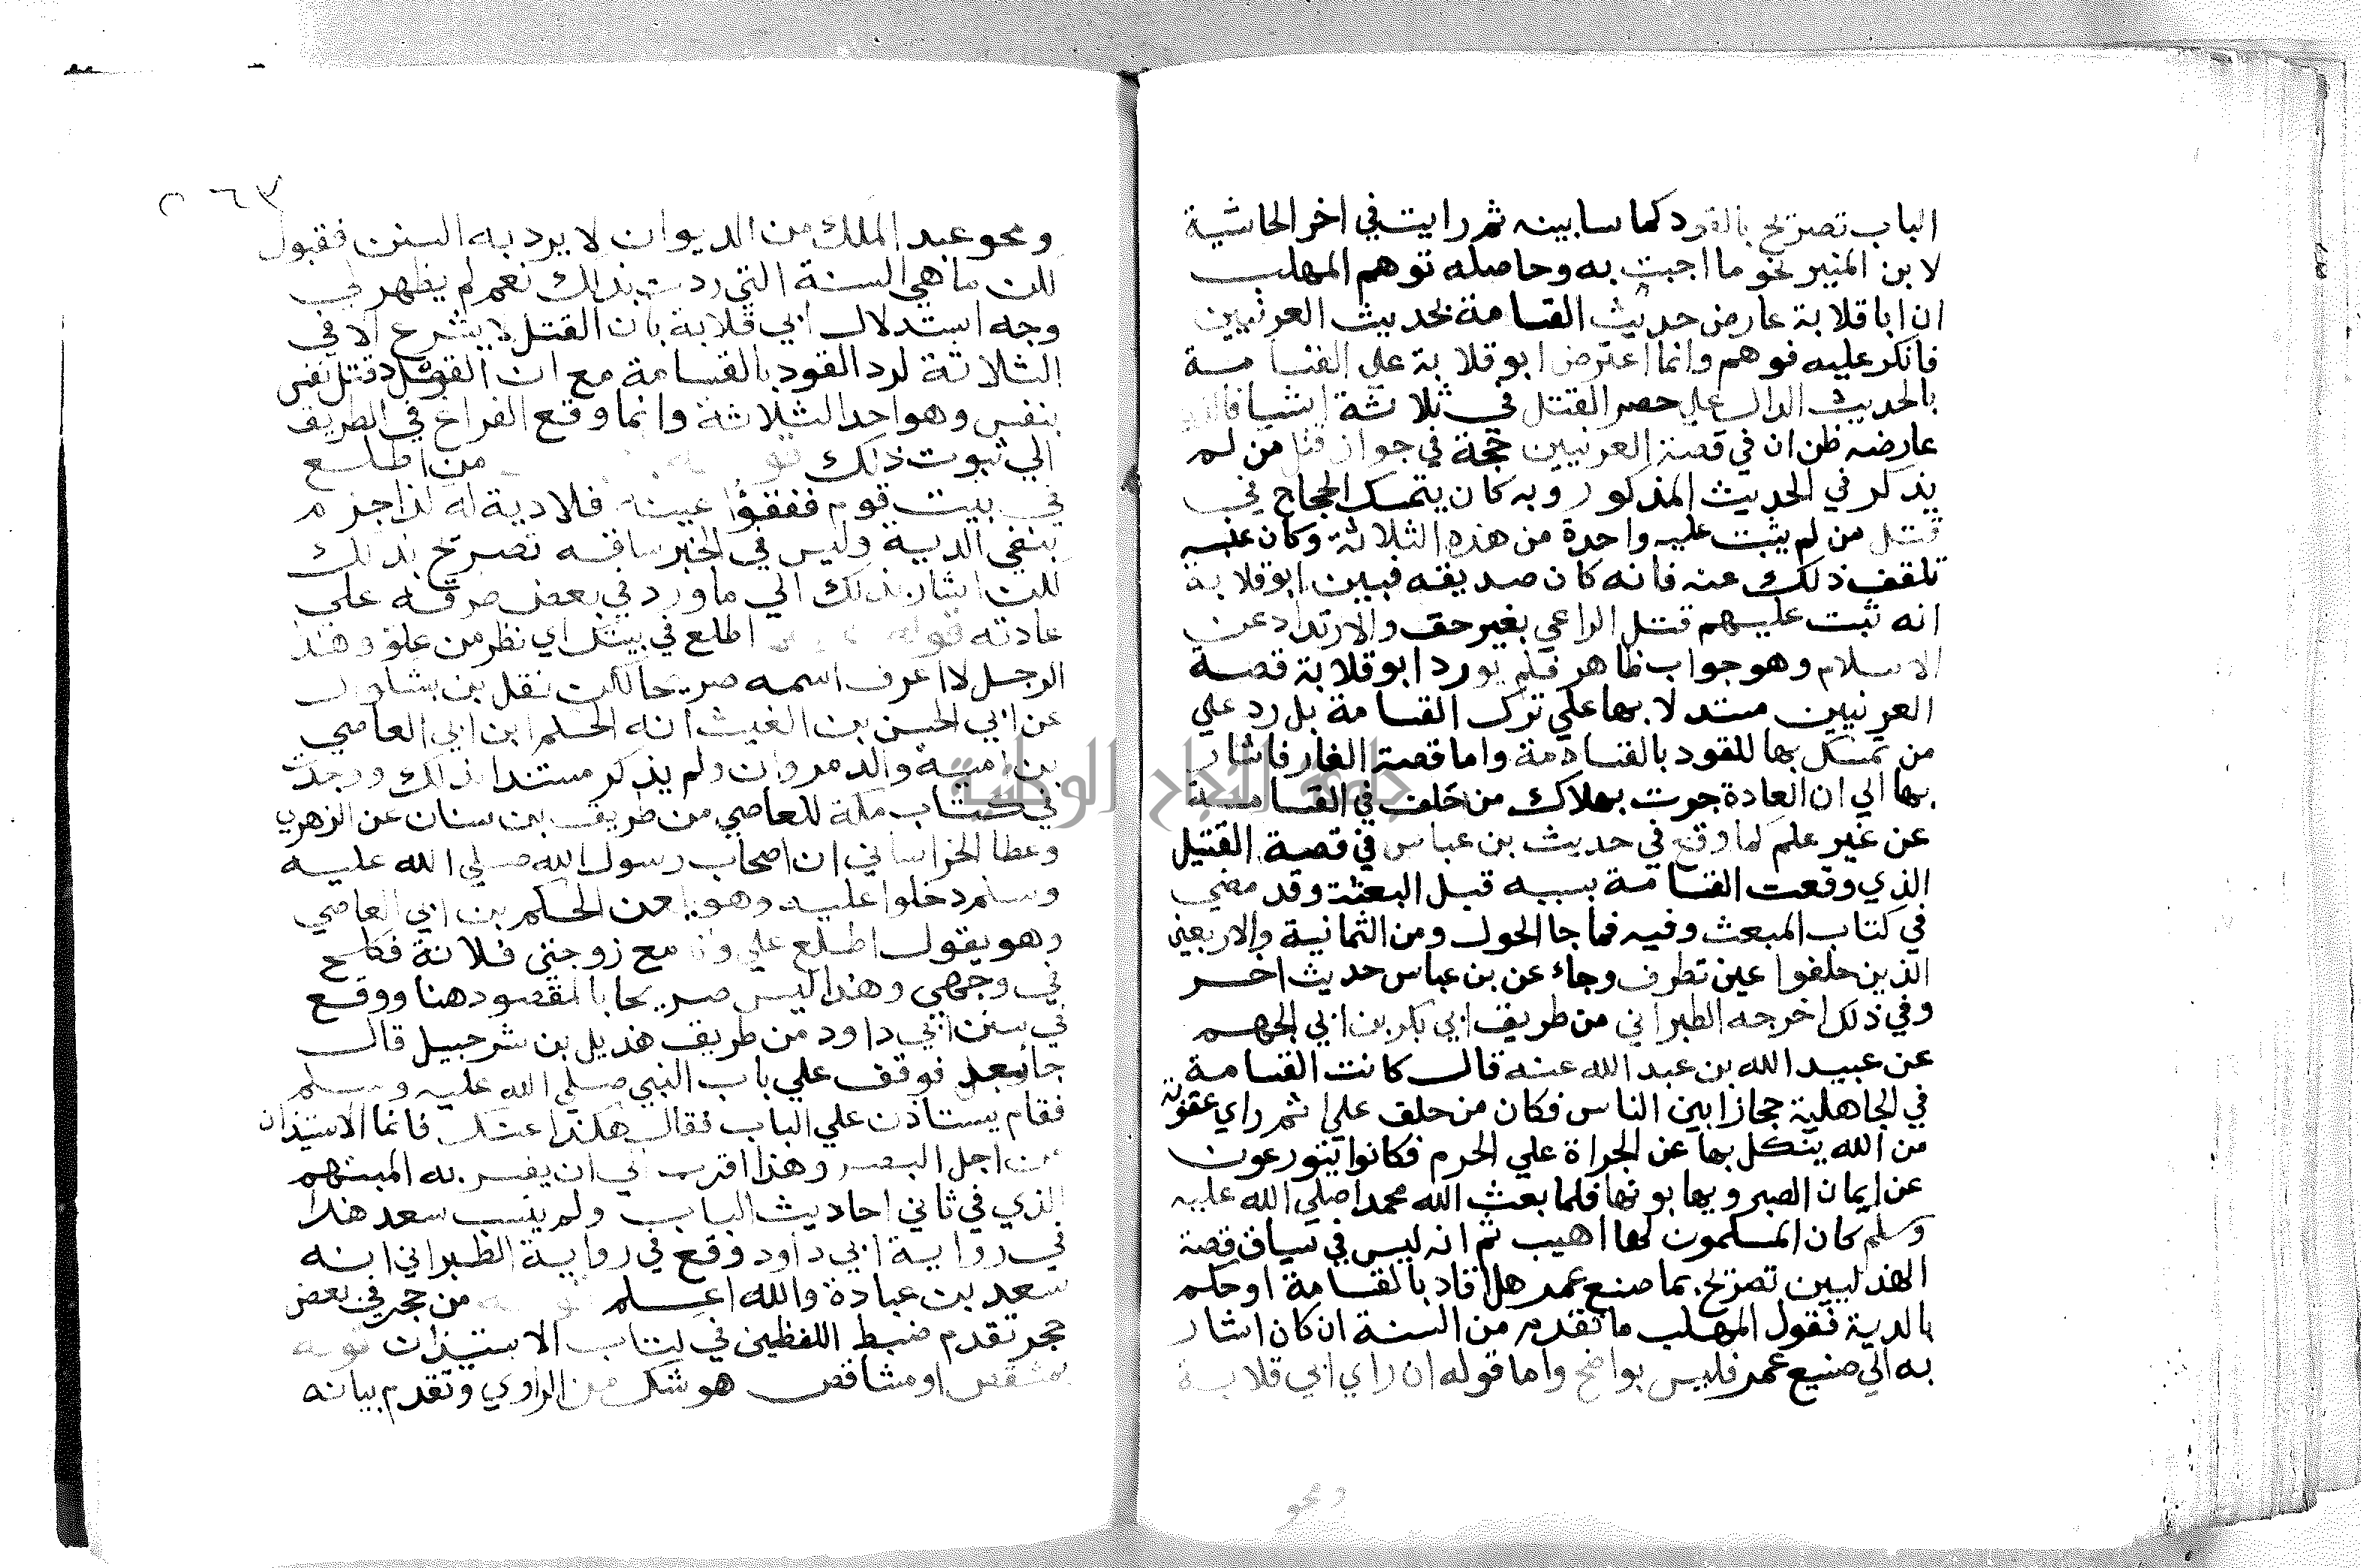 الباب تصريح بالقود كما سابينه ثم رايت في اخر الحاشية
لابن المنير نحو ما اجبت به وحاصله توهم المهلب
ان ابا قلابة عارض حديث القسامة بحديث العرنيين
فانكر عليه فوهم وانما اعترض ابو قلابة علي القسامة
بالحديث الدال علي حصر القتل في ثلاثة اشيا فالذي
عارضه ظن ان في قصة العرنيين حجة في جواز قتل من لم
يذكر في الحديث المذكور وبه كان يتمسك الحجاج في
قتل من لم يثبت عليه واحدة من هذه الثلاثة وكان عنبسه
تلقف ذلك عنه فانه كان صديقه فبين ابو قلابة
انه ثبت عليهم قتل الراعي بغير حق والارتداد عن
الاسلام وهو جواب ظاهر فلم يورد ابو قلابة قصة
العرنيين مستدلا بها علي ترك القسامة بل رد علي
من تمسك بها للقود بالقسامة واما قصة الغار فاشار
بها الي ان العادة جرت بهلاك من حلف في القسامة
عن غير علم كما وقع في حديث بن عباس في قصة القتيل
الذي وقعت القسامة بسببه قبل البعثة وقد مضي
في كتاب المبعث وفيه فما جا الحول ومن الثمانية والاربعين
الذين حلفوا عين تطرف وجاء عن بن عباس حديث اخر
وفي ذلك اخرجه الطبراني من طريق ابي بكر بن ابي الجهم
عن عبيد الله بن عبد الله عنه قال كانت القسامة
في الجاهلية حجازا بين الناس فكان من حلف علي اثم راي عقوبة
من الله ينكل بها عن الجراة علي الحرم فكانوا يتورعون
عن ايمان الصبر ويهابونها فلما بعث الله محمدا صلي الله عليه
وسلم كان المسلمون لها اهيب ثم انه ليس في سياق قصة
الهذليين تصريح بما صنع عمر هل اقاد بالقسامة او حكم
بالدية فقول المهلب ما تقدم من السنة ان كان اشار
به الي صنيع عمر فليس بواضح واما قوله ان راي ابي قلابة
ومحو
ومحو عبد الملك من الديوان لا يرد به السنن فقبول
لكن ما هي السنة التي ردت بذلك نعم لم يظهر لي
وجه استدلال ابي قلابة بان القتل لا يشرع الا في
الثلاثة لرد القود بالقسامة مع ان القود قتل نفس
بنفس وهو احد الثلاثة وانما وقع النزاع في الطريق
الي ثبوت ذلك قوله من اطلع
في بيت قوم ففقؤا عينه فلا دية له كذا جزم
بنفي الدية وليس في الخبر ساقه تصريح بذلك
لكن اشار بذلك الي ما ورد في بعض طرقه علي
عادته قوله اطلع في بيتك اي نظر من علو وهذا
الرجل لا اعرف اسمه صريحا لكن نقل بن بشكوال
عن ابي الحسن بن الغيث انه الحكم ابن ابي العاصي
بن امية والد مروان ولم يذكر مستندا لذلك ووجدت
في كتاب مكة للفاكهي من طريق بن سنان عن الزهري
وعطا الخراساني ان اصحاب رسول الله صلي الله عليه
وسلم دخلوا عليه وهو يلعن الحكم بن ابي العاصي
وهو يقول اطلع علي وانا مع زوجتي فلانة فكلح
في وجهي وهذا ليس صريحا بالمقصود هنا ووقع
في سنن ابي داود من طريق هذيل بن شرحبيل قال
جا سعد فوقف علي باب النبي صلي الله عليه وسلم
فقام يستاذن علي الباب فقال هكذا عنك فانما الاستيذان
من اجل البصر وهذا اقرب الي ان يفسر به المبهم
الذي في ثاني احاديث الباب ولم ينسب سعد هذا
في رواية ابي داود ووقع في رواية الطبراني انه
سعد بن عبادة والله اعلم قوله من حجر في بعض
حجر تقدم ضبط اللفظين في كتاب الاستيذان قوله
بمشقص او مشاقص هو شك من الراوي وتقدم بيانه